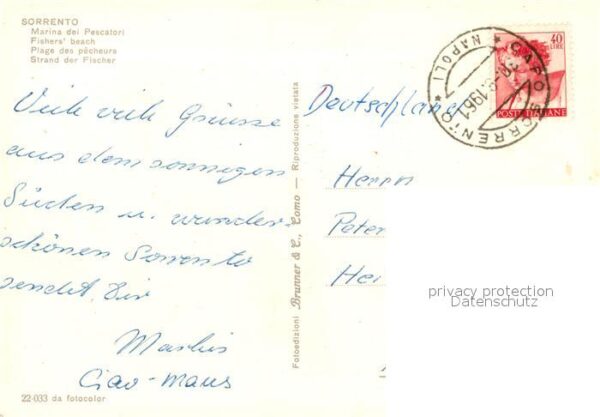 SORRENTO
Marina dei Pescatori
Fishers' beach
Plage des pêcheurs
Strand der Fischer
Viele viele Grüsse
aus dem sonnigen
Süden u. wunder-
schönen Sorrento
sendet Dir
Ciao-Maus
22-033 da fotocolor
Fotoedizioni Brunner & C., Como — Riproduzione vietata
Deutschland
Herrn
Peter
40
LIRE
POSTE ITALIANE
CAPO SORRENTO
* NAPOLI *
1961
privacy protection
Datenschutz